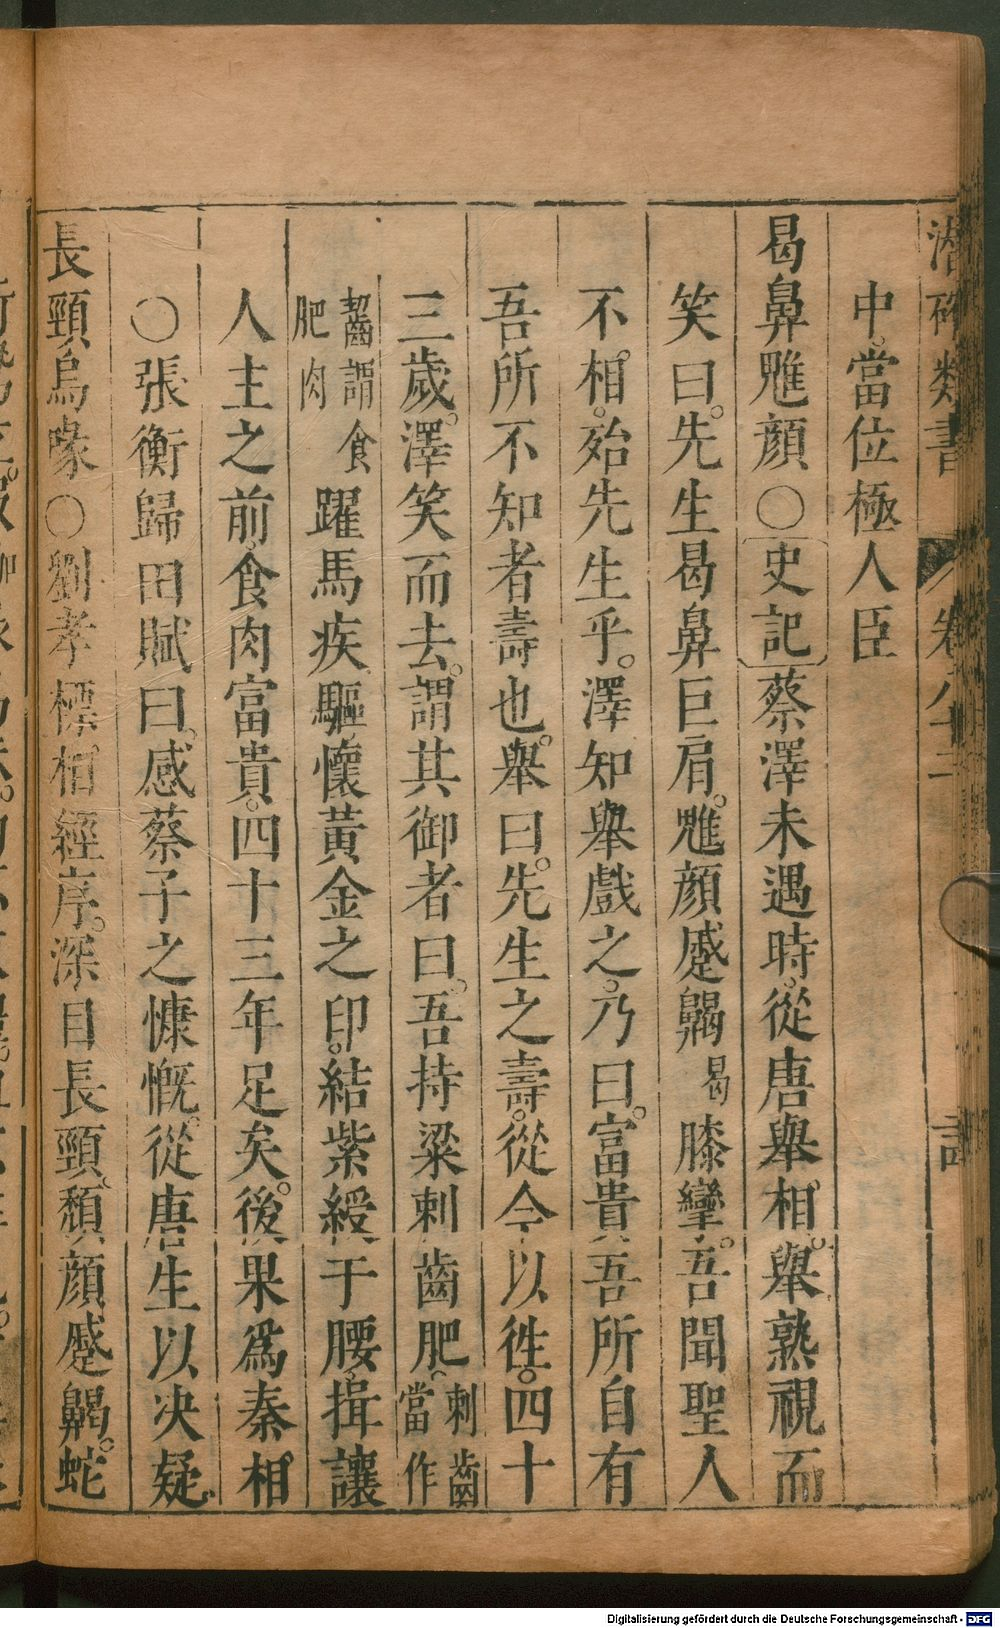 潛確類書
卷八十二
中。當位極人臣
曷鼻魋顔○史記蔡澤未遇時。從唐舉相。舉熟視而
笑曰。先生曷鼻巨肩。魋顔蹙齃曷膝攣。吾聞聖人
不相。殆先生乎。澤知舉戲之。乃曰。富貴吾所自有
吾所不知者壽也。舉曰。先生之壽。從今以徃。四十
三歲。澤笑而去。謂其御者曰。吾持粱刺齒肥。刺齒當作
齧齒謂食肥肉躍馬疾驅。懷黃金之印。結紫綬于腰。揖讓
人主之前。食肉富貴。四十三年足矣。後果爲秦相。
○張衡歸田賦曰。感蔡子之慷慨。從唐生以決疑。
長頸烏喙○劉孝標相經序。深目長頸。頹顔蹙齃。蛇
Digitalisierung gefördert durch die Deutsche Forschungsgemeinschaft - DFG